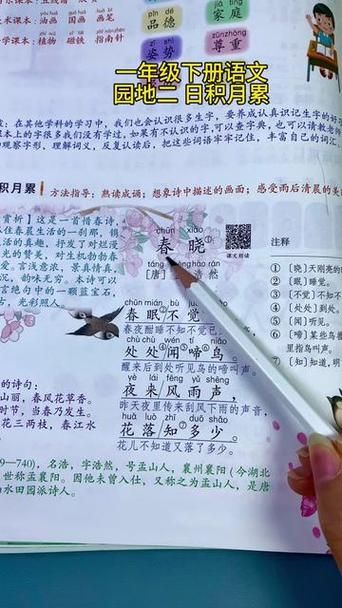 油画 国画 画笔
学课本：植物 磁铁 指南针
pǐn dé
品德
jiā tíng
家庭
zī shì
姿势
zūnzhòng
尊重
一年级下册语文
园地二 日积月累
在其他学科的学习中，我们也会认识很多生字，要养成认真识记生字的
本上的字很多我们没有学过，如果有不认识的字，可以查字典，也可以请教老师
观察字形，理解词义，反复认读后，把这些词语牢牢记住，丰富自己的词汇
积月累
方法指导：熟读成诵；想象诗中描述的画面；感受雨后清晨的美
赏析】这是一首惜春诗，
住在春晨醒来的一刹那，
活的真趣，抒发了对烂漫
光的赞美，对生机勃勃春
爱。言浅意浓，景真情真，
沉，韵味无穷。本诗可以
言绝句中的一颗蓝宝石，
古，光彩照人。
chūn xiǎo
春晓①
táng mèng hào rán
[唐] 浩然
课文朗读
chūn mián bù jué xiǎo
春眠②不觉
春夜酣睡不知不觉已
chù chù wén tí niǎo
处处④闻⑤啼⑥鸟。
醒来后到处听见鸟的啼叫声。
yè lái fēng yǔ shēng
夜来风雨声，
昨天夜里传来刮风下雨的声音，
huā luò zhī duō shǎo
花落知⑦多少。
花儿不知道又落了多少。
注释
①〔晓〕天刚亮的
②〔眠〕睡觉。
③〔不觉〕不知不
④〔处处〕到处。
⑤〔闻〕听见。
⑥〔啼〕某些鸟
里指鸟叫声。
⑦〔知〕知道，明
的诗句：
山丽，春风花草香。
时节，当春乃发生。
花三两枝，春江水
9—740），名浩，字浩然，号孟山人，襄州襄阳（今湖北
世称孟襄阳。因他未曾入仕，又称之为孟山人，是唐
山水田园派诗人。